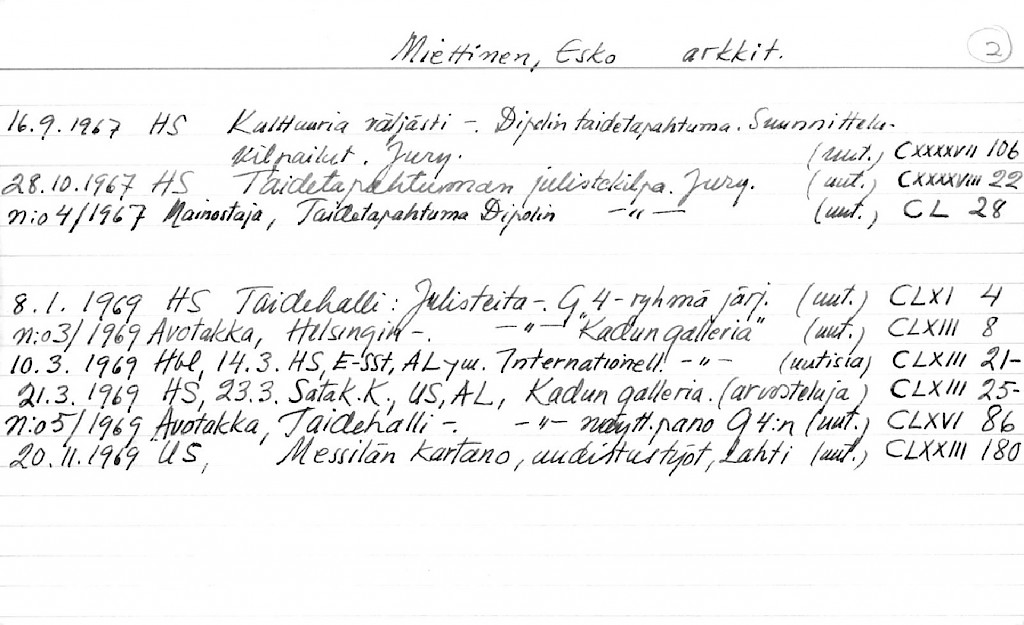 Miettinen, Esko arkkit. 2
16.9.1967 HS Kulttuuria väljästi -. Dipolin taidetapahtuma. Suunnittelu-
kilpailut. Jury. (uut.) CXXXXVII 106
28.10.1967 HS Taidetapahtuman julistekilpa. Jury. (uut.) CXXXXVIII 22
n:o 4/1967 Mainostaja, Taidetapahtuma Dipolin -"- (uut.) CL 28
8.1. 1969 HS Taidehalli: Julisteita -. G 4-ryhmä järj. (uut.) CLXI 4
n:o 3/1969 Avotakka, Helsingin -. -"- "Kadun galleria" (uut.) CLXIII 8
10.3. 1969 Hbl, 14.3. HS, E-SSt, AL ym. Internationell. -"- (uutisia) CLXIII 21-
21.3. 1969 HS, 23.3. Satak.K., US, AL, Kadun galleria. (arvosteluja) CLXIII 25-
n:o 5/1969 Avotakka, Taidehalli -. -"- näytt.pano G 4:n (uut.) CLXVI 86
20.11.1969 US, Messilän kartano, uudistustyöt, Lahti (uut.) CLXXIII 180